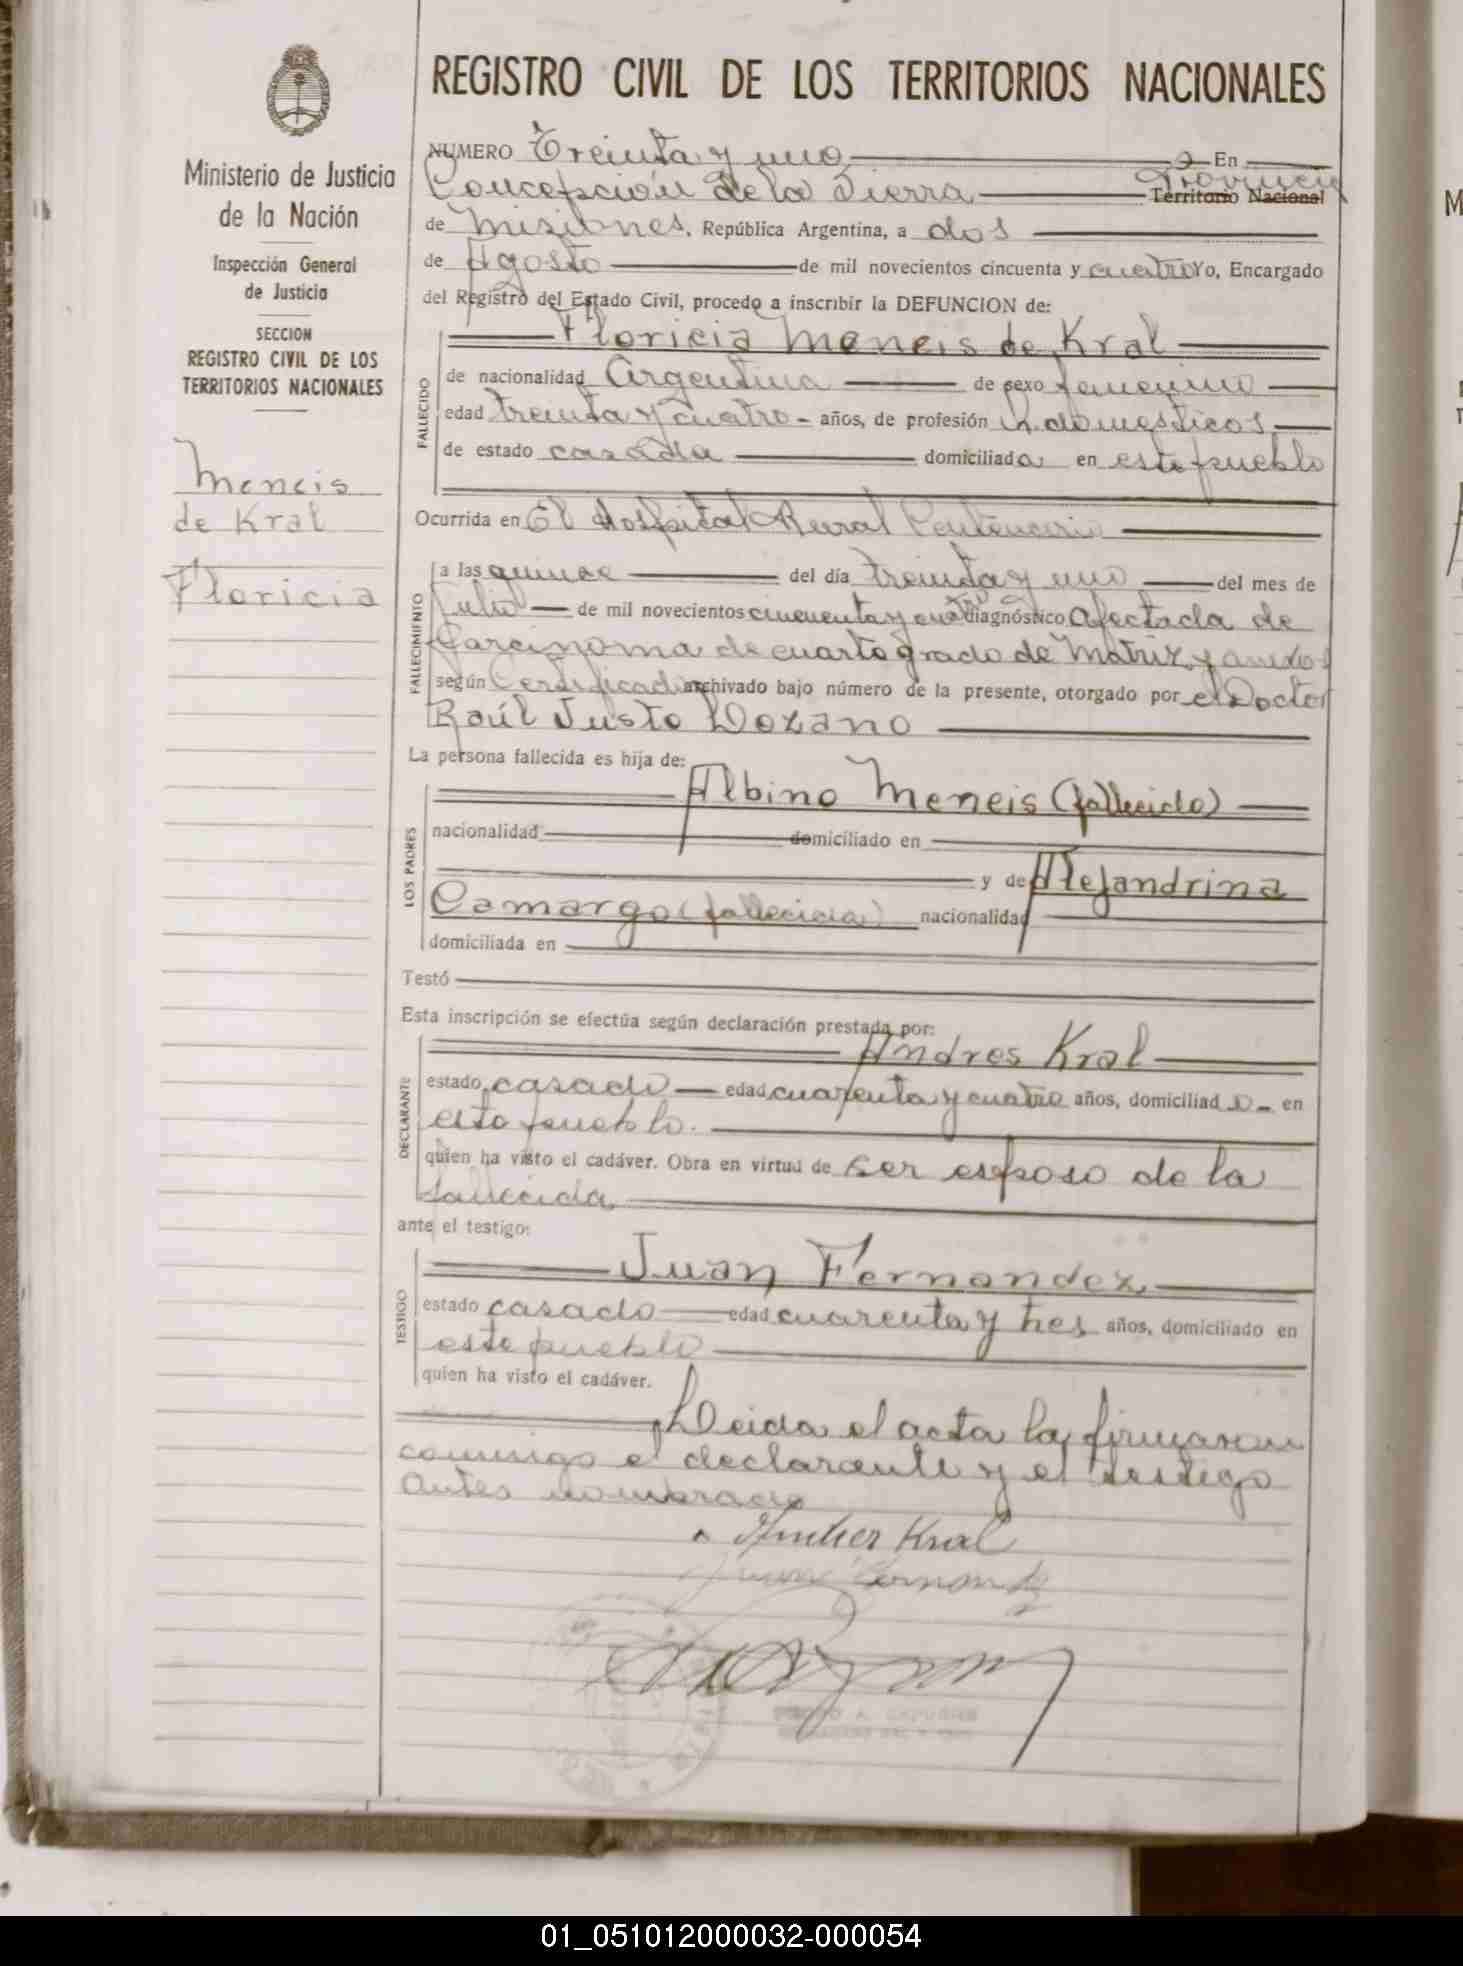 REGISTRO CIVIL DE LOS TERRITORIOS NACIONALES
Ministerio de Justicia
de la Nación
Inspección General
de Justicia
SECCION
REGISTRO CIVIL DE LOS
TERRITORIOS NACIONALES
Meneis
de Kral
Floricia
NUMERO Treinta y uno En
Concepción de la Sierra Provincia Territorio Nacional
de Misiones, República Argentina, a dos
de Agosto de mil novecientos cincuenta y cuatro Yo, Encargado
del Registro del Estado Civil, procedo a inscribir la DEFUNCION de:
Floricia Meneis de Kral
FALLECIDO
de nacionalidad Argentina de sexo femenino
edad treinta y cuatro - años, de profesión q. domesticos
de estado casada domiciliada en este pueblo
Ocurrida en El Hospital Rural
FALLECIMIENTO
a las quince del día treinta y uno del mes de
Julio de mil novecientos cincuenta y cuatro diagnóstico Afectada de
Carcinoma de cuarto grado de Matriz y anexos
según Certificado archivado bajo número de la presente, otorgado por el Doctor
Raúl Justo Lozano
La persona fallecida es hija de:
LOS PADRES
Albino Meneis (fallecido)
nacionalidad domiciliado en
y de Alejandrina
Camargo (fallecida) nacionalidad
domiciliada en
Testó
Esta inscripción se efectúa según declaración prestada por:
DECLARANTE
Andres Kral
estado casado edad cuarenta y cuatro años, domiciliad o - en
este pueblo.
quien ha visto el cadáver. Obra en virtud de ser esposo de la
fallecida
ante el testigo:
TESTIGO
Juan Fernandez
estado casado edad cuarenta y tres años, domiciliado en
este pueblo
quien ha visto el cadáver.
Leida el acta la firmaron
conmigo el declarante y el testigo
antes nombrado
Kral
01_051012000032-000054